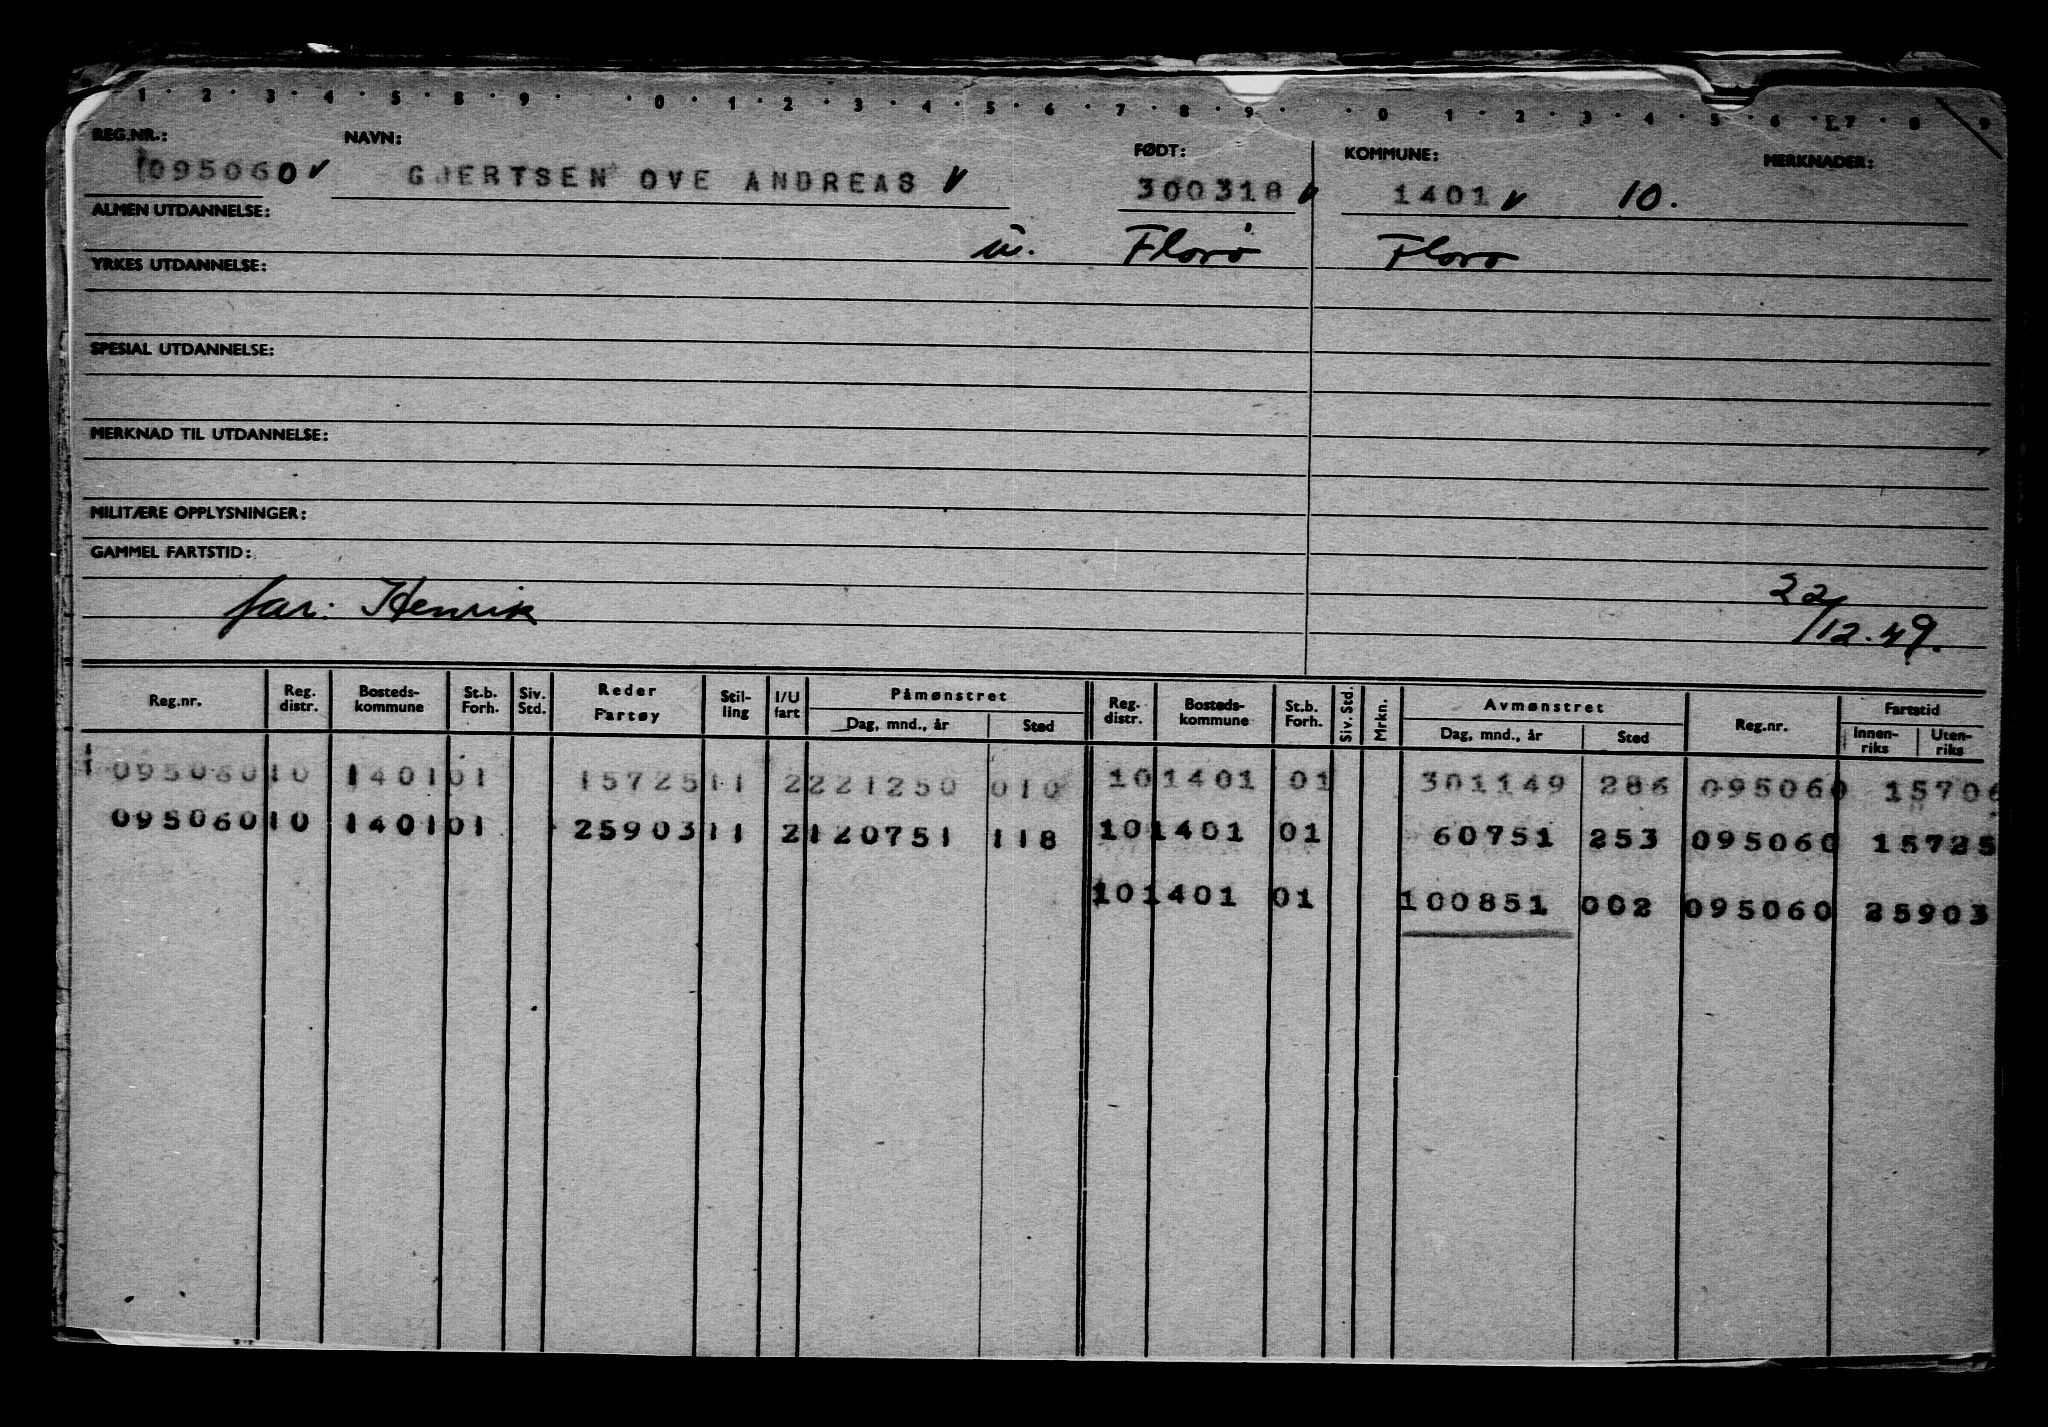 1 · 2 · 3 · 4 · 5 · 8 · 9 · · 0 · 1 · 2 · 3 · 4 · 5 · 6 · 7 · 8 · 9 · · 0 · 1 · 2 · 3 · 4 · 5 · 6 · 7 · 8 · 9
REG.NR.: NAVN: FØDT: KOMMUNE: MERKNADER:
095060 GJERTSEN OVE ANDREAS 300318 1401 10.
ALMEN UTDANNELSE:
u. Florø Florø
YRKES UTDANNELSE:
SPESIAL UTDANNELSE:
MERKNAD TIL UTDANNELSE:
MILITÆRE OPPLYSNINGER:
GAMMEL FARTSTID:
far: Henrik 22/12.49.
Reg.nr. Reg. distr. Bosteds-kommune St.b. Forh. Siv. Std. Reder Fartøy Stil-ling I/U fart Påmønstret Dag, mnd., år Sted Reg. distr. Bosteds-kommune St.b. Forh. Siv. Std. Mrkn. Avmønstret Dag, mnd., år Sted Reg.nr. Fartstid Innen-riks Uten-riks
095060 10 1401 01 15725 11 2 221250 010 10 1401 01 301149 286 095060 15706
095060 10 1401 01 25903 11 2 120751 118 10 1401 01 60751 253 095060 15725
10 1401 01 100851 002 095060 25903